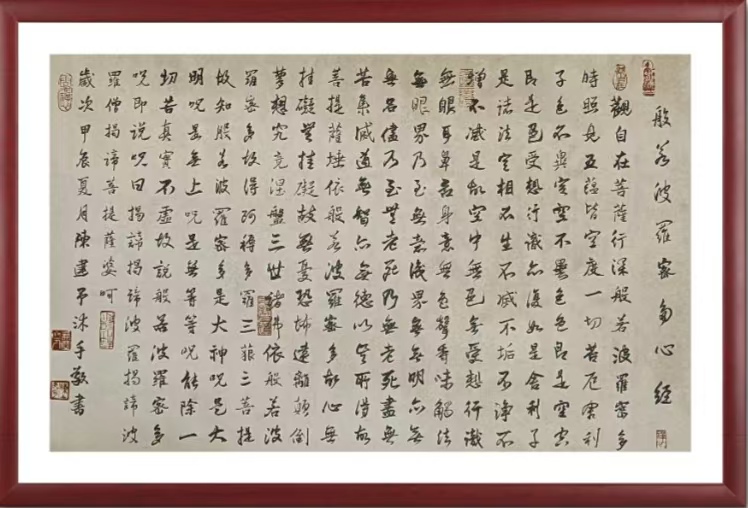 般若波羅密多心經
觀自在菩薩行深般若波羅密多
時照見五蘊皆空度一切苦厄舍利
子色不異空空不異色色即是空空
即是色受想行識亦復如是舍利子
是諸法空相不生不滅不垢不淨不
增不減是故空中無色無受想行識
無眼耳鼻舌身意無色聲香味觸法
無眼界乃至無意識界無無明亦無
無名儘乃至無老死乃無老死盡無
苦集滅道無智亦無德以無所得故
菩提薩埵依般若波羅密多故心無
挂礙無挂礙故無憂恐怖遠離顛倒
夢想究竟涅盤三世諸佛依般若波
羅密多故得阿耨多羅三菠三菩提
故知般若波羅密多是大神咒是大
明咒是無上咒是無等等咒能除一
切苦真實不虛故說般若波羅密多
咒即說咒曰揭諦揭諦波羅揭諦波
羅僧揭諦菩提薩婆呵
歲次甲辰夏月陳建沐手敬書